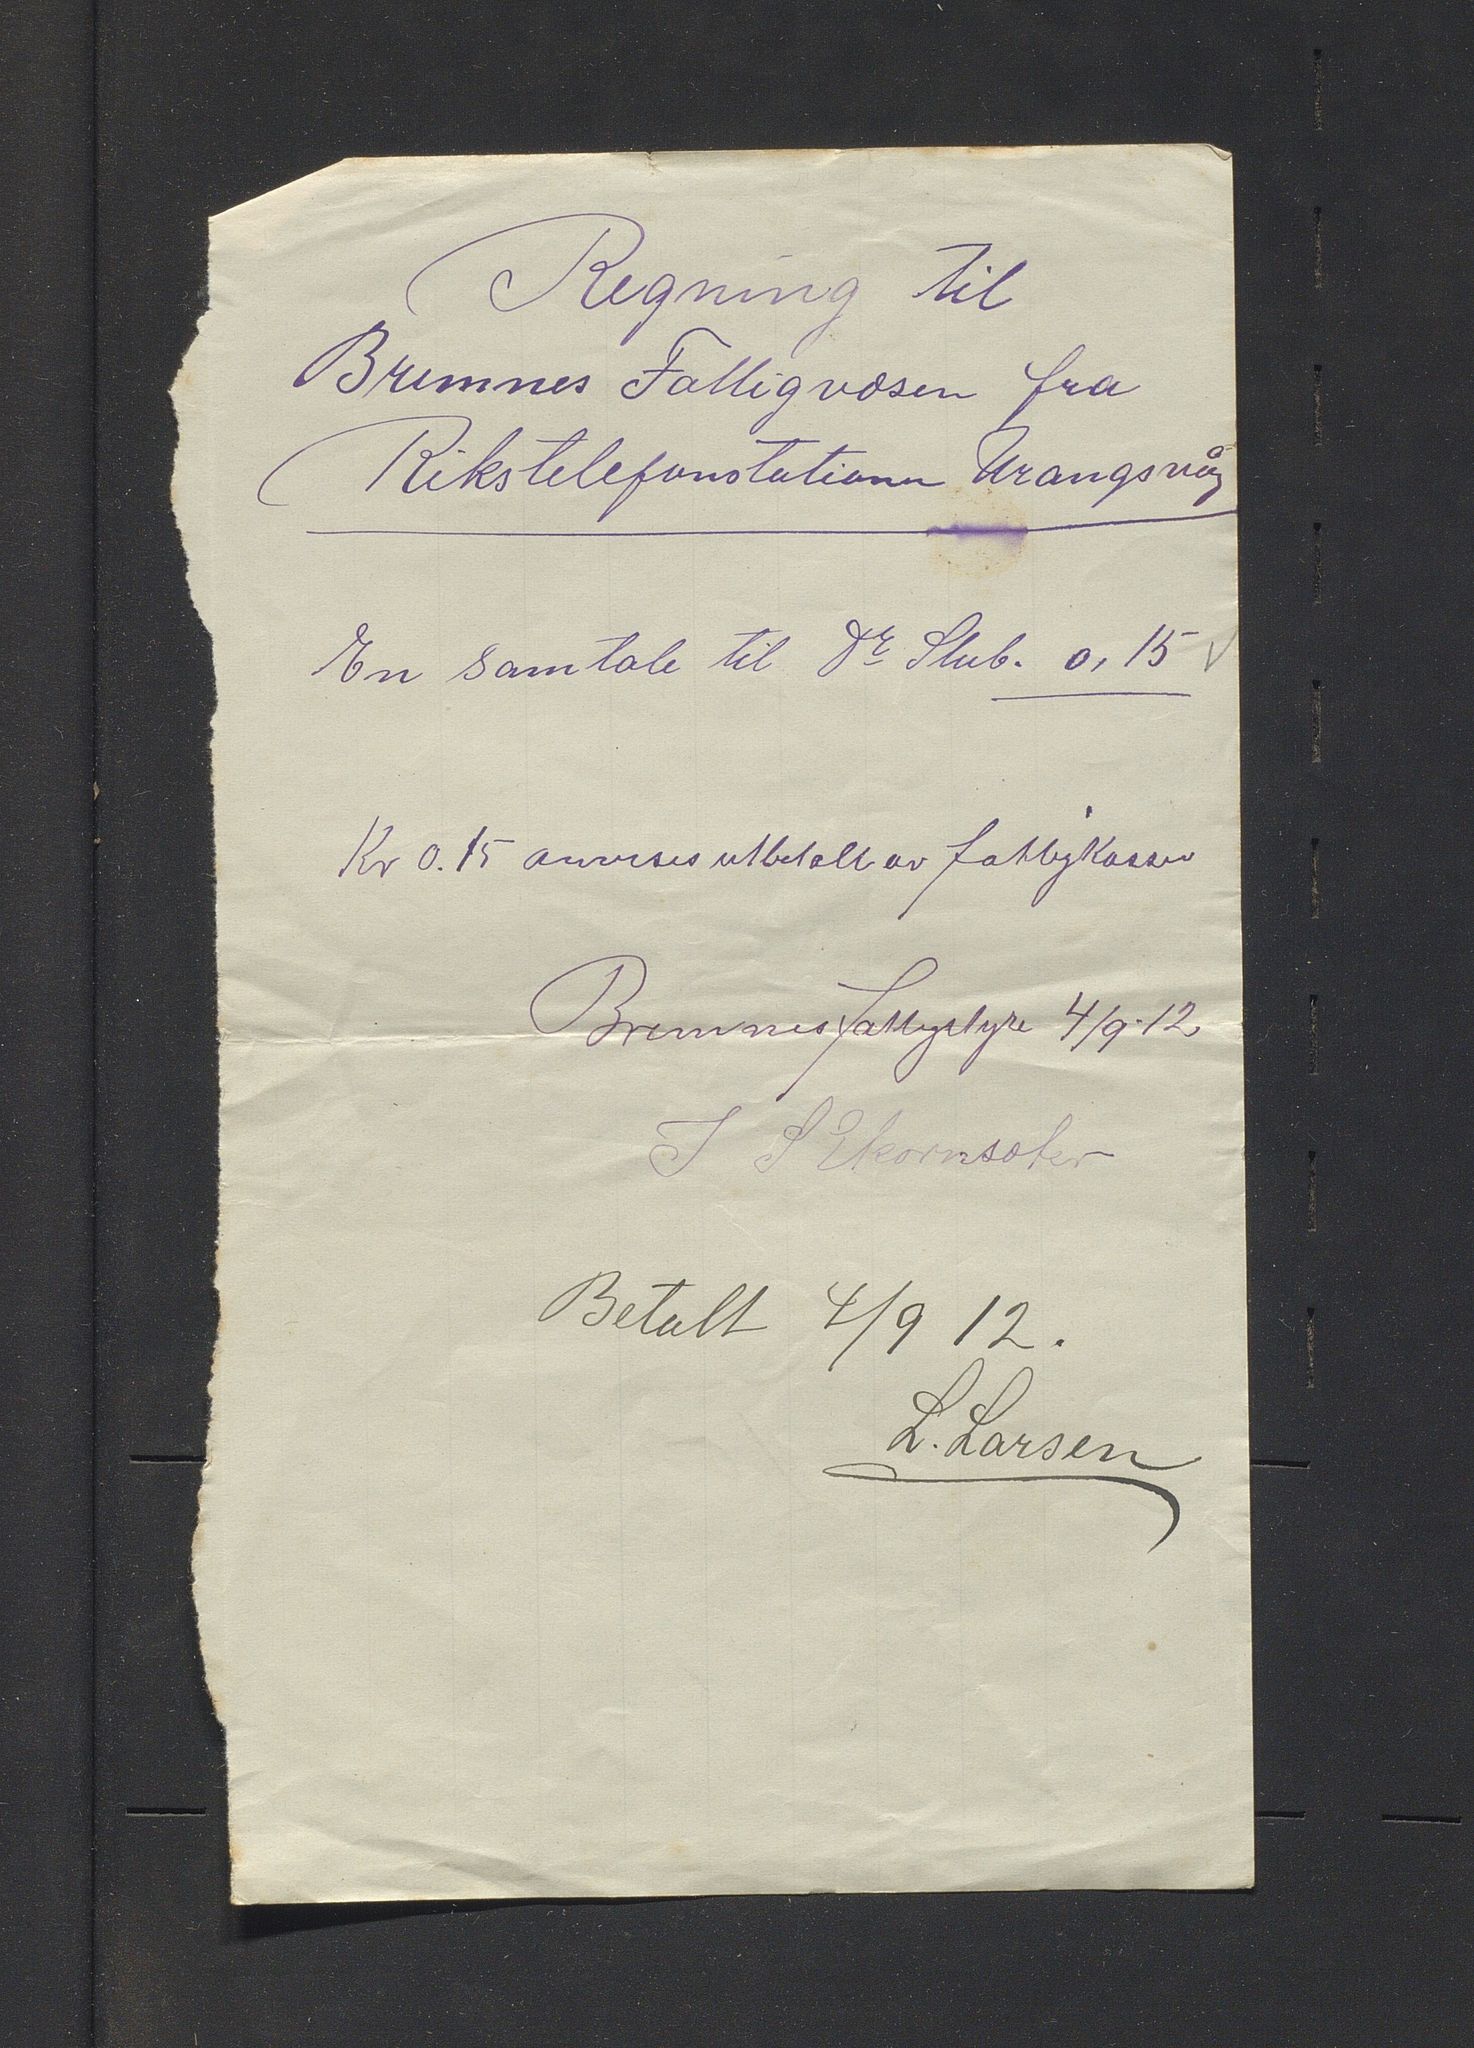 Regning til
Bremnes Fattigvæsen fra
Rikstelefonstationen Urangsvåg
En samtale til Dr Stub. 0,15 √
Kr 0.15 anvises utbetalt av fattigkassen
Bremnes fattigstyre 4/9-12
J S Ekornsæter
Betalt 4/9 12.
L. Larsen